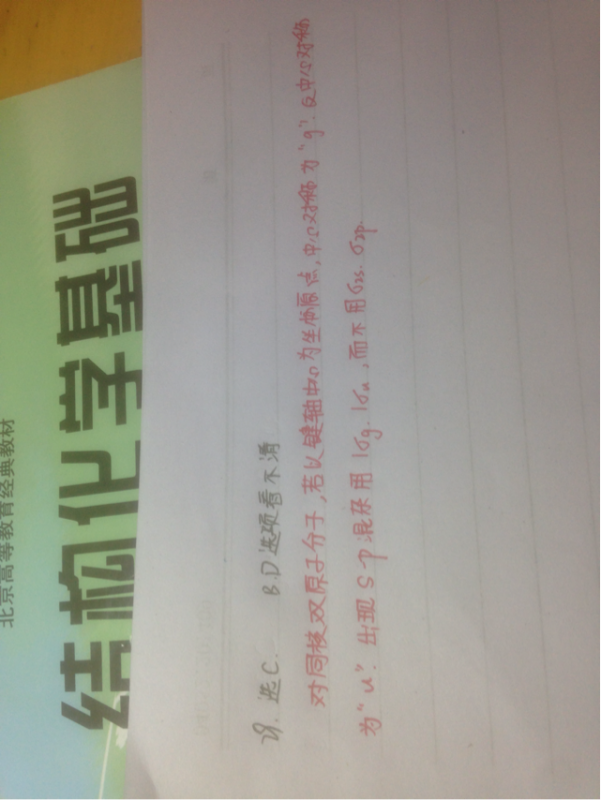 北京高等教育经典教材
结构化学基础
29. 选C. B.D选项看不清
对同核双原子分子,若以键轴中心为坐标原点,中心对称为"g".反中心对称
为"u". 出现s-p混杂用1σg. 1σu,而不用σ2s. σ2p.